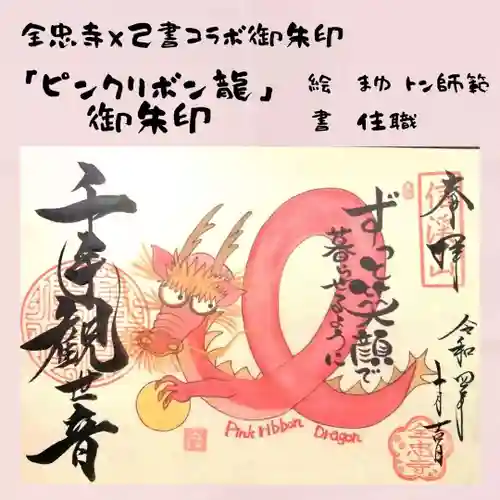 全忠寺×乙書コラボ御朱印
「ピンクリボン龍」
御朱印
絵 まゆトン師範
書 住職
奉拝
信渓山
令和四年
十月吉日
全忠寺
ずっと笑顔で
暮らせるように
千手観世音
Pink ribbon Dragon